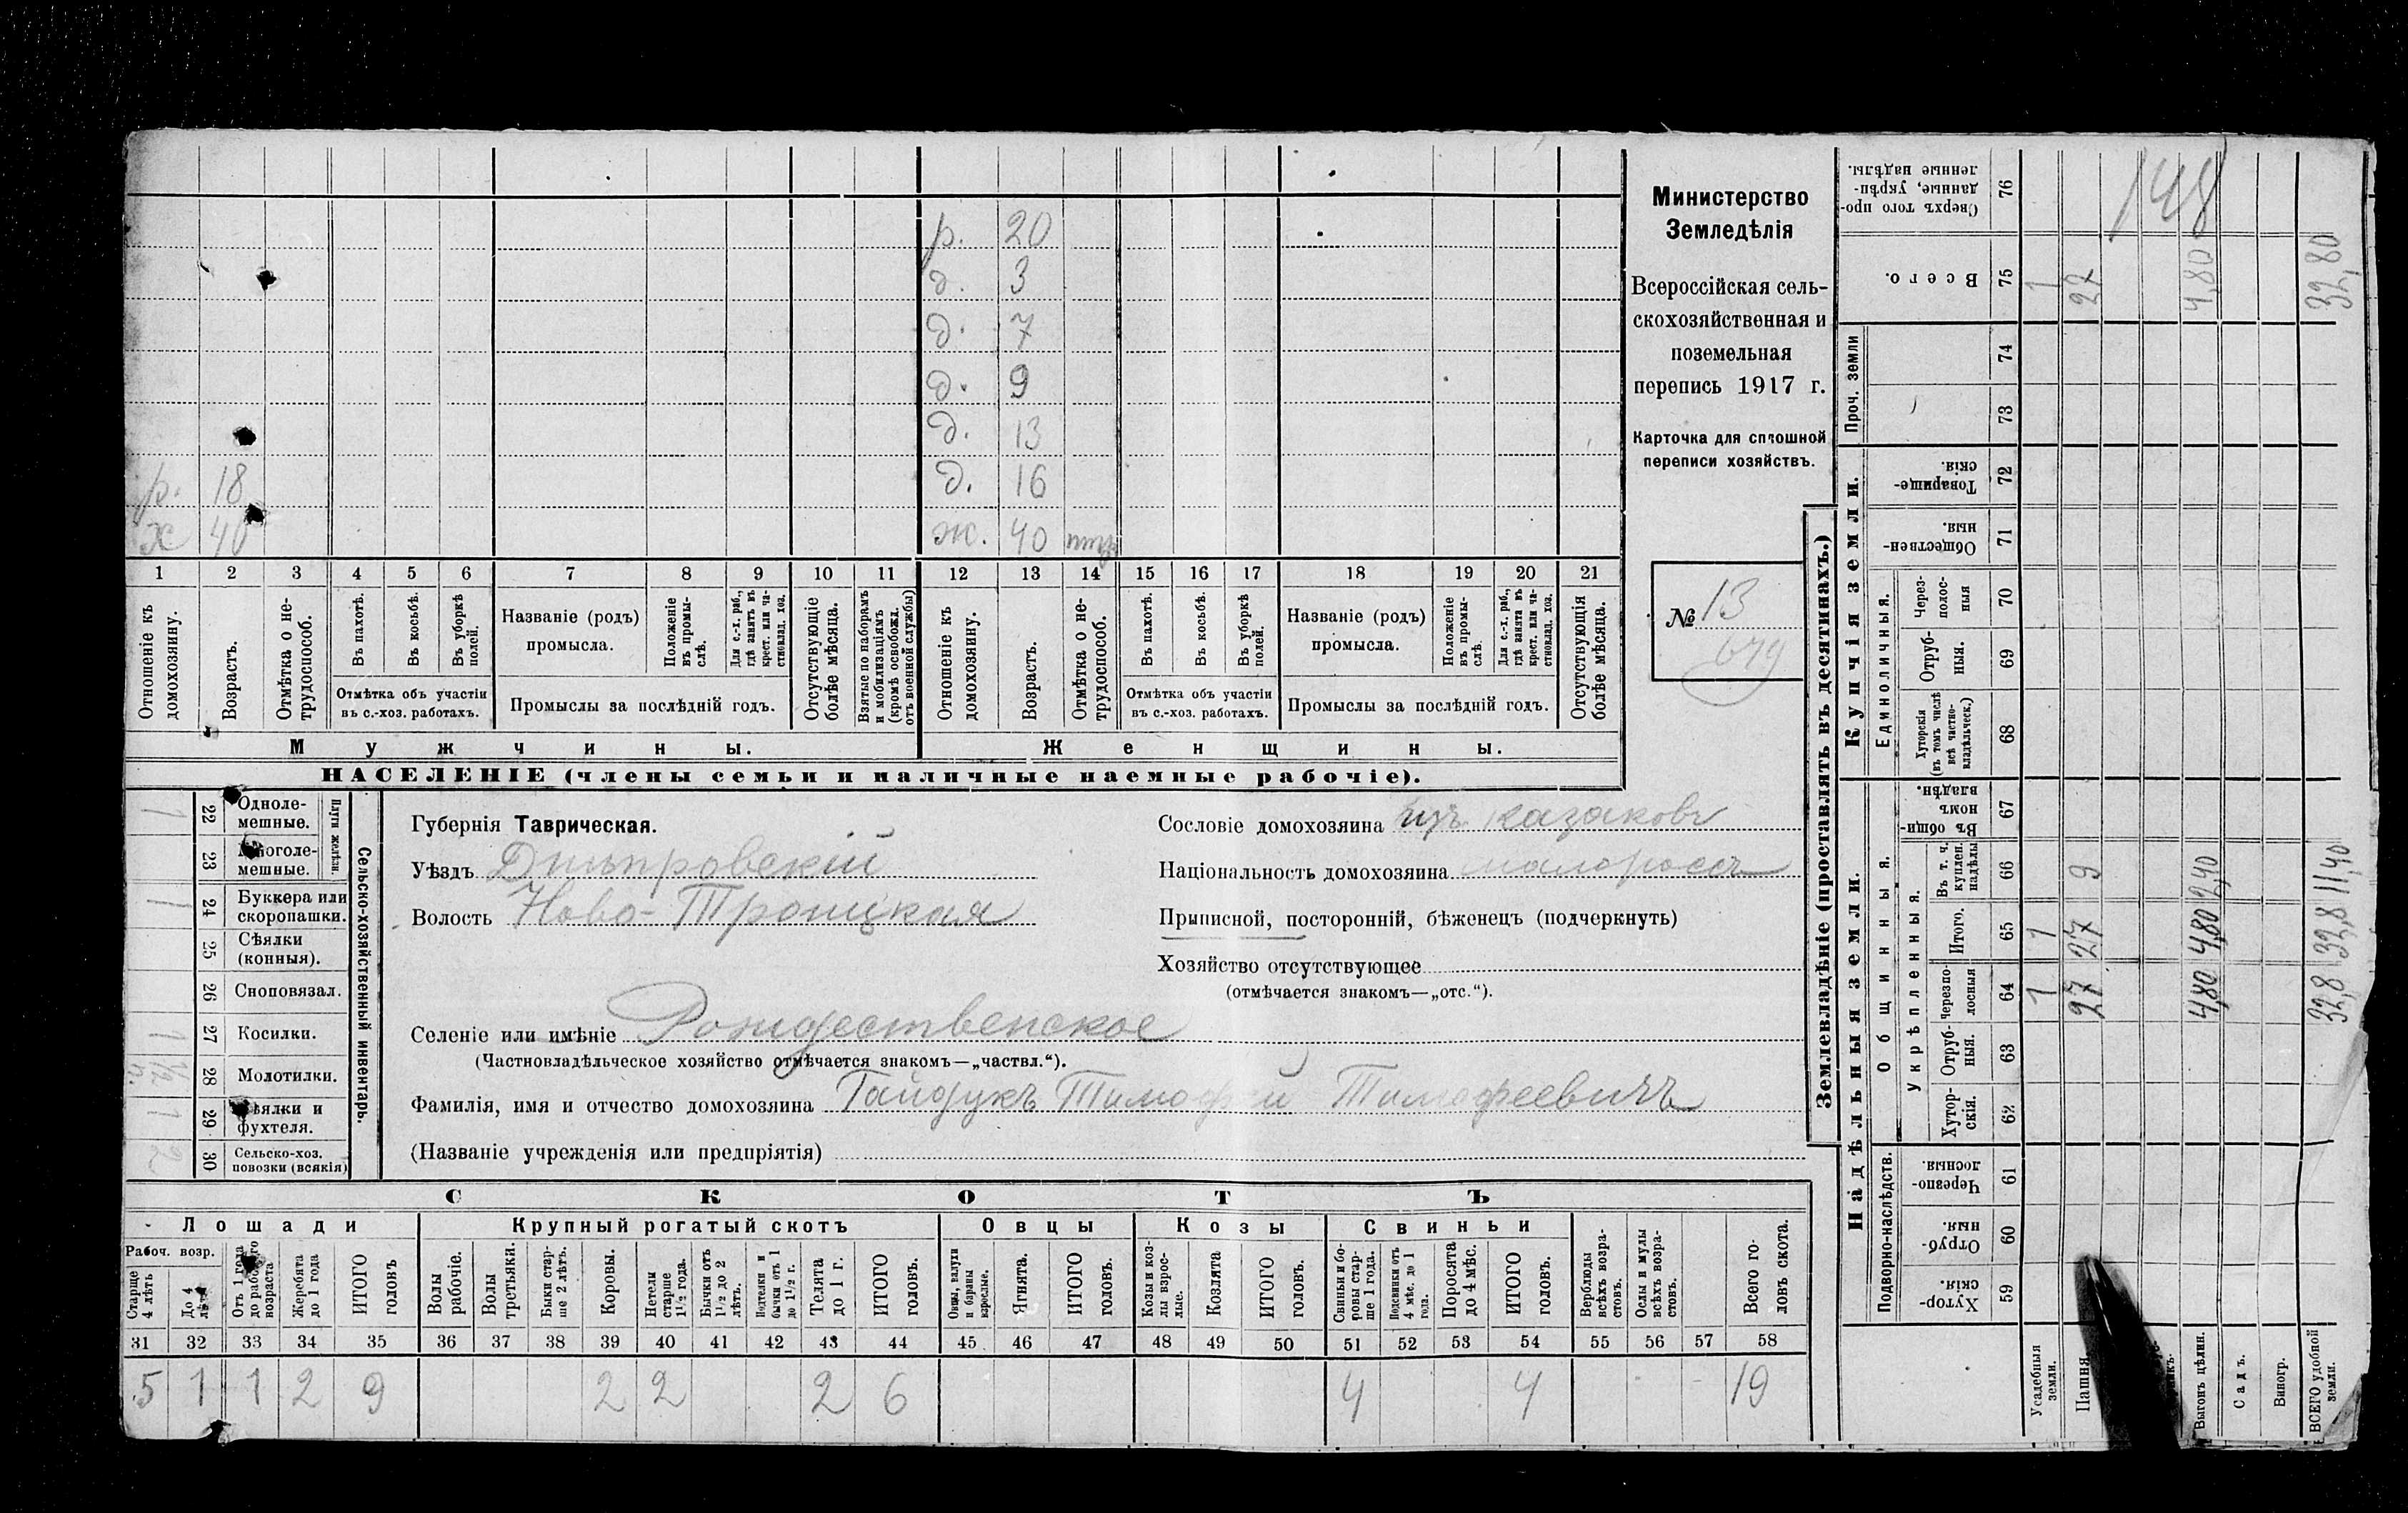 р. 20
д. 3
д. 7
д. 9
д. 13
р. 18 д. 16
х 40 ж. 40
1 2 3 4 5 6 7 8 9 10 11 12 13 14 15 16 17 18 19 20 21
Отношеніе къ домохозяину.
Возрастъ.
Отмѣтка о не-трудоспособ.
Въ пахотѣ.
Въ косьбѣ.
Въ уборкѣ полей.
Отмѣтка объ участіи въ с.-хоз. работахъ.
Названіе (родъ) промысла.
Положеніе въ промы-слѣ.
Для с.-х. раб., гдѣ занятъ въ крест. или ча-стновлад. хоз.
Промыслы за послѣдній годъ.
Отсутствующіе болѣе мѣсяца.
Взятые по наборамъ и мобилизаціямъ (кромѣ освобожд. отъ военной службы)
Отношеніе къ домохозяину.
Возрастъ.
Отмѣтка о не-трудоспособ.
Въ пахотѣ.
Въ косьбѣ.
Въ уборкѣ полей.
Отмѣтка объ участіи въ с.-хоз. работахъ.
Названіе (родъ) промысла.
Положеніе въ промы-слѣ.
Для с.-х. раб., гдѣ занята въ крест. или ча-стновлад. хоз.
Промыслы за послѣдній годъ.
Отсутствующія болѣе мѣсяца.
Мужчины. Женщины.
НАСЕЛЕНІЕ (члены семьи и наличные наемные рабочіе).
Министерство
Земледѣлія
Всероссійская сель-
скохозяйственная и
поземельная
перепись 1917 г.
Карточка для сплошной
переписи хозяйствъ.
№ 13
679
Сельско-хозяйственный инвентарь.
Плуги желѣзн.
1 22 Одноле-мешные.
23 Многоле-мешные.
1 24 Буккера или скоропашки.
25 Сѣялки (конныя).
26 Сноповязал.
1 27 Косилки.
1/2 28 Молотилки.
1 29 Вѣялки и фухтеля.
2 30 Сельско-хоз. повозки (всякія)
Губернія Таврическая.
Уѣздъ Днѣпровскій
Волость Ново-Троицкая
Селеніе или имѣніе Рождественское
(Частновладѣльческое хозяйство отмѣчается знакомъ—„частвл.“).
Фамилія, имя и отчество домохозяина Гайдукъ Тимофей Тимофеевичъ
(Названіе учрежденія или предпріятія)
Сословіе домохозяина изъ казаковъ
Національность домохозяина малороссъ
Приписной, посторонній, бѣженецъ (подчеркнуть)
Хозяйство отсутствующее
(отмѣчается знакомъ—„отс.“).
СКОТЪ
Лошади Крупный рогатый скотъ Овцы Козы Свиньи
Рабоч. возр.
Старше 4 лѣтъ
До 4 лѣтъ
Отъ 1 года до рабочаго возраста
Жеребята до 1 года
ИТОГО головъ
Волы рабочіе.
Волы третьяки.
Быки стар-ше 2 лѣтъ.
Коровы.
Нетели старше 1½ года.
Бычки отъ 1½ до 2 лѣтъ.
Подтелки и бычки отъ 1 до 1½ г.
Телята до 1 г.
ИТОГО головъ.
Овцы, валухи и бараны взрослые.
Ягнята.
ИТОГО головъ.
Козы и коз-лы взрос-лые.
Козлята
ИТОГО головъ.
Свиньи и бо-ровы стар-ше 1 года.
Подсвинки отъ 4 мѣс. до 1 года.
Поросята до 4 мѣс.
ИТОГО головъ.
Верблюды всѣхъ возра-стовъ.
Ослы и мулы всѣхъ возра-стовъ.
Всего го-ловъ скота.
31 32 33 34 35 36 37 38 39 40 41 42 43 44 45 46 47 48 49 50 51 52 53 54 55 56 57 58
5 1 1 2 9 2 2 2 6 4 4 19
Землевладѣніе (проставлять въ десятинахъ.)
Надѣльныя земли. Купчія земли. Проч. земли
Подворно-наслѣдств.
Общинныя.
Укрѣпленныя.
Единоличныя.
Хутор-скія. 59
Отруб-ныя. 60
Черезпо-лосныя. 61
Хутор-скія. 62
Отруб-ныя. 63
Черезпо-лосныя 64
Итого. 65
Въ т. ч. куплен. надѣлы 66
Въ общин-номъ владѣн. 67
Хуторскія (въ томъ числѣ всѣ частно-владѣльческ.) 68
Отруб-ныя. 69
Через-полос-ныя 70
Обществен-ныя. 71
Товарище-скія. 72
73
74
Всего. 75
Сверхъ того про-данные, укрѣп-ленные надѣлы. 76
Усадебныя земли. 1 1 1
Пашня 27 27 9 27
148
Выгонъ цѣлин. 4,80 4,80 2,40 4,80
Садъ.
Виногр.
ВСЕГО удобной земли. 32,8 32,8 11,40 32,80